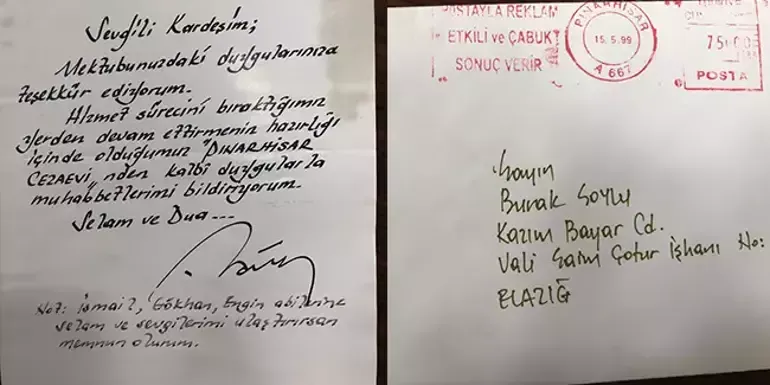 Sevgili Kardeşim;
Mektubunuzdaki duygularınıza
teşekkür ediyorum.
Hizmet sürecini bıraktığımız
yerden devam ettirmenin hazırlığı
içinde olduğumuz "PINARHİSAR
CEZAEVİ" nden kalbî duygularla
muhabbetlerimi bildiriyorum.
Selam ve Dua...
Not: İsmail, Gökhan, Engin abilerine
selam ve sevgilerimi ulaştırırsan
memnun olurum.
POSTAYLA REKLAM
ETKİLİ ve ÇABUK
SONUÇ VERİR
PINARHİSAR
15.5.99
A 667
POSTA
Sayın
Burak Soylu
Kazım Bayar Cd.
Vali Saim Çotur İşhanı No:
ELAZIĞ